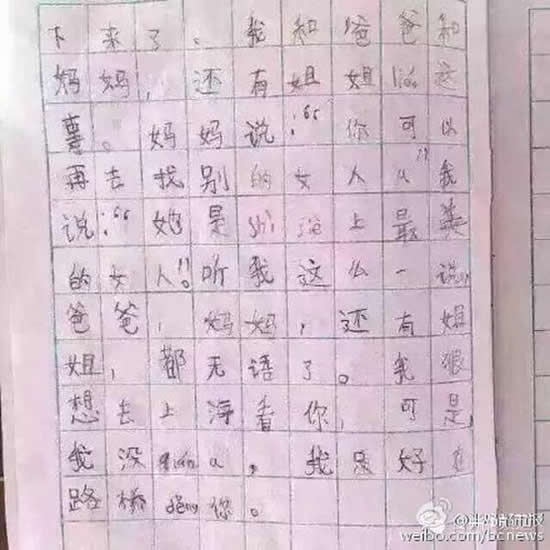 下来了。我和爸爸和
妈妈，还有姐姐liáo这
事。妈妈说：“你可以
再去找别的女人a”我
说：“她是shì jiè上最美
的女人”!听我这么一说，
爸爸，妈妈，还有姐
姐，都无语了。我狠
想去上海看你，可是，
我没qián a，我只好在
路桥děng你。
weibo.com/bcnews